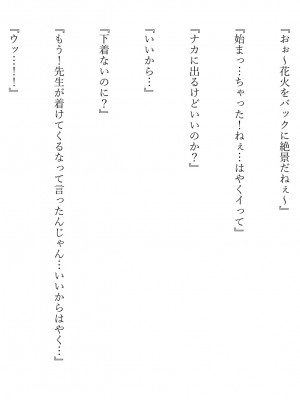 『おぉ～花火をバックに絶景だねぇ～』
『始まっ…ちゃった！ねぇ…はやくイって』
『ナカに出るけどいいのか？』
『いいから…』
『下着ないのに？』
『もう！先生が着けてくるなって言ったんじゃん…いいからはやく…』
『ウッ…！！』